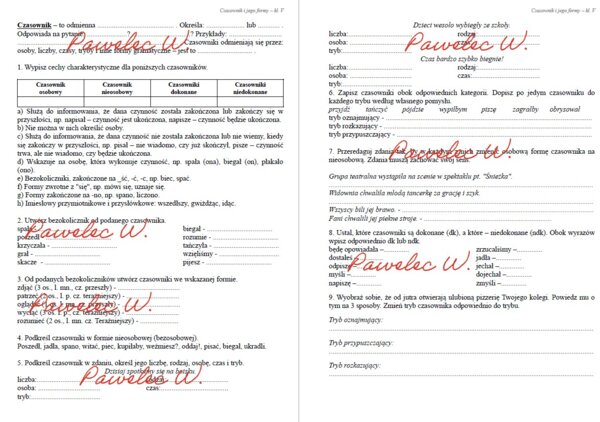 Czasownik i jego formy – kl. V
Czasownik – to odmienna ................. Określa: ................. lub ........... .
Odpowiada na pytania: ? ? Przykłady: .................
Czasowniki odmieniają się przez:
osoby, liczby, czasy, tryby i inne formy gramatyczne – jest to
1. Wypisz cechy charakterystyczne dla poniższych czasowników.
Czasownik osobowy Czasownik nieosobowy Czasowniki dokonane Czasowniki niedokonane
a) Służą do informowania, że dana czynność została zakończona lub zakończy się w
przyszłości, np. napisał – czynność jest ukończona, napiszę – czynność będzie ukończona.
b) Nie można w nich określić osoby.
c) Służą do informowania, że dana czynność nie została zakończona lub nie wiemy, kiedy
się zakończy w przyszłości, np. pisał – nie wiadomo, czy już skończył, pisze – czynność
trwa, ale nie wiadomo, czy będzie ukończona.
d) Wskazuje na osobę, która wykonuje czynność, np. spała (ona), biegał (on), płakało
(ono).
e) Bezokoliczniki, zakończone na _ść, -ć, -c, np. biec, spać.
f) Formy zwrotne z "się", np. mówi się, uznaje się.
g) Formy zakończone na -no, np. spano, liczono.
h) Imiesłowy przymiotnikowe i przysłówkowe: wszedłszy, gwiżdżąc, idąc.
2. Utwórz bezokolicznik od podanego czasownika.
biegał - .................
rozumie - .................
krzyczała - ................. tańczyła - .................
grał - ................. wzięliśmy - .................
skacze - ................. pijesz - .................
3. Od podanych bezokoliczników utwórz czasowniki we wskazanej formie.
zdjąć (3 os., l. mn., cz. przeszły) - .................
patrzeć l. p. cz. teraźniejszy) - .................
cz. przeszły) - .................
wyciąć (3 os., l. p. cz. teraźniejszy) - .................
rozumieć (2 os., l. mn. cz. Teraźniejszy) - .................
4. Podkreśl czasowniki w formie nieosobowej (bezosobowej).
Poszedł, jadła, spano, witać, piec, kupiłaby, weźmiesz?, oddaj!, pisać, biegał, ukradli.
5. Podkreśl czasownik w zdaniu, określ jego liczbę, rodzaj, osobę, czas i tryb.
Dzisiaj spotkamy się na boisku.
liczba:................. rodzaj:.................
osoba: ................. czas:.................
tryb:.................
Pawelec W.
Pawelec W.
Pawelec W.
Pawelec W.
Czasownik i jego formy – kl. V
Dzieci wesoło wybiegły ze szkoły.
liczba:................. rodzaj:.................
osoba: ................. czas:.................
tryb:.................
Czas bardzo szybko biegnie!
liczba:................. rodzaj:.................
osoba: ................. czas:.................
tryb:.................
6. Zapisz czasowniki obok odpowiednich kategorii. Dopisz po jednym czasowniku do
każdego trybu według własnego pomysłu.
przyjdź tańczyć pójdzie wypiłbym piszę zagrałby obrysował
tryb oznajmujący - .................
tryb rozkazujący - .................
tryb przypuszczający - .................
7. Przeredaguj zdania tak, by w każdym z nich zmienić osobową formę czasownika na
nieosobową. Zdania muszą zachować swój sens.
Grupa teatralna wystąpiła na scenie w spektaklu pt. "Śnieżka".
Widownia chwaliła młodą tancerkę za grację i szyk.
Wszyscy bili jej brawo. - .................
Fani chwalili jej piękne stroje. - .................
8. Ustal, które czasowniki są dokonane (dk), a które – niedokonane (ndk). Obok wyrazów
wpisz odpowiednio dk lub ndk.
będę opowiadała – ................. zrzucaliśmy –.................
dostałeś – ................. jadła –.................
odpisz ................. jechał –.................
myśli – ................. dojechał –.................
napiszę – ................. zmyśli –.................
9. Wyobraź sobie, że od jutra otwierają ulubioną pizzerię Twojego kolegi. Powiedz mu o
tym na 3 sposoby. Zmień tryb czasownika odpowiednio do trybu.
Tryb oznajmujący:
Tryb przypuszczający:
Tryb rozkazujący:
Pawelec W.
Pawelec W.
Pawelec W.